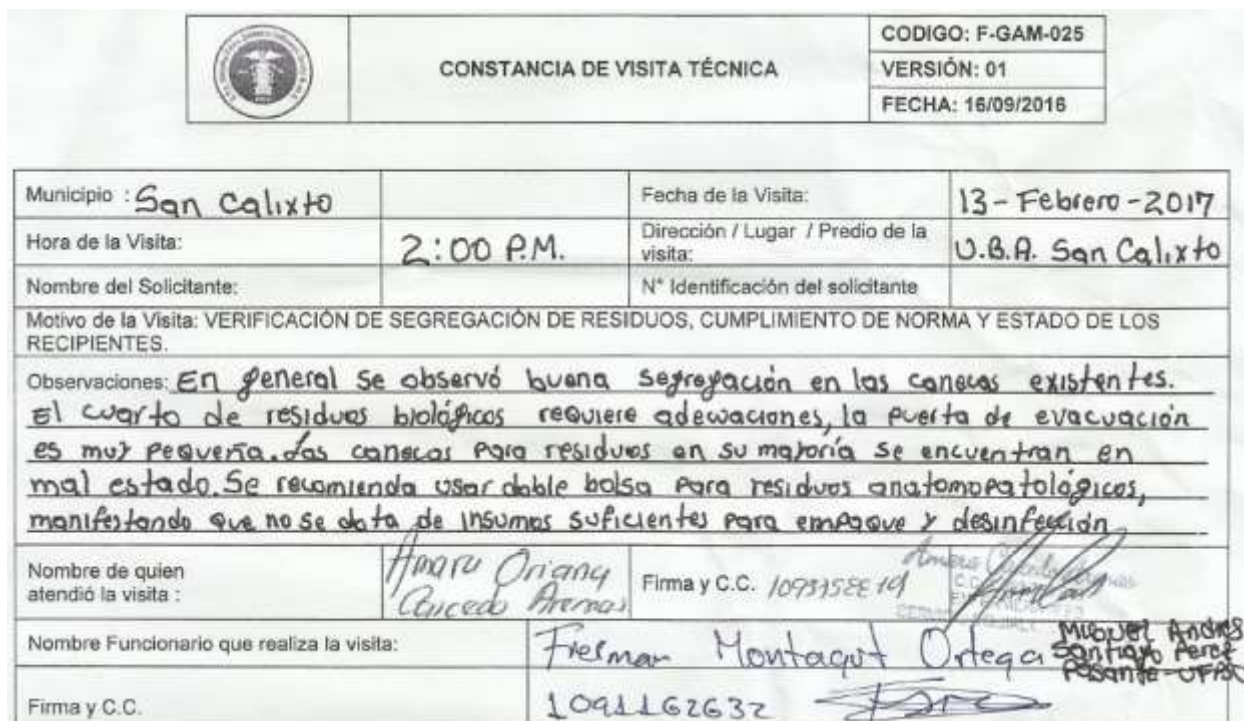 CONSTANCIA DE VISITA TÉCNICA
CODIGO: F-GAM-025
VERSIÓN: 01
FECHA: 16/09/2016
Municipio : San Calixto
Fecha de la Visita: 13-Febrero-2017
Hora de la Visita: 2:00 P.M.
Dirección / Lugar / Predio de la visita: U.B.A. San Calixto
Nombre del Solicitante:
N° Identificación del solicitante
Motivo de la Visita: VERIFICACIÓN DE SEGREGACIÓN DE RESIDUOS, CUMPLIMIENTO DE NORMA Y ESTADO DE LOS
RECIPIENTES.
Observaciones: En general se observó buena segregación en las canecas existentes.
El cuarto de residuos biológicos requiere adewaciones, la puerta de evacuación
es muy pequeña. Las canecas para residuos en su mayoría se encuentran en
mal estado. Se recomienda usar doble bolsa para residuos anatomopatológicos,
manifestando que no se data de insumos suficientes para empaque y desinfección
Nombre de quien
atendió la visita :
Oriana
Firma y C.C.
Nombre Funcionario que realiza la visita: Montagut Ortega
Miguel Andres
Santiago Perez
Firma y C.C. 1091162632